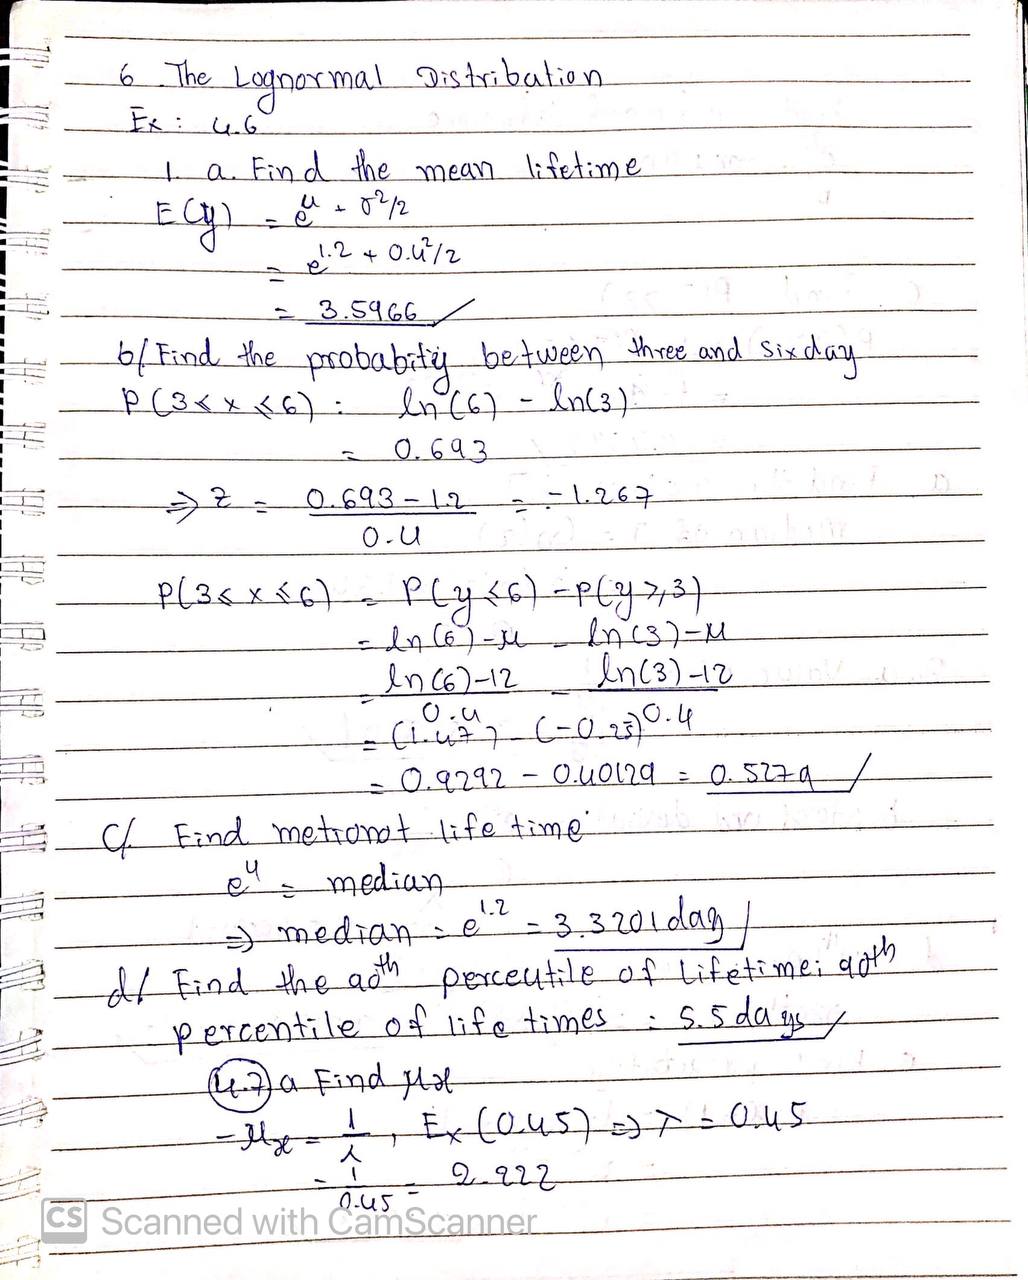 6 The Lognormal Distribution
Ex: 4.6
1. a. Find the mean lifetime
E(y) = e^μ + σ²/2
= e^1.2 + 0.4²/2
= 3.5966
b/ Find the probabity between three and six day
P(3≤x≤6) : ln(6) - ln(3)
= 0.693
⇒ Z = (0.693-1.2)/0.4 = -1.267
P(3≤x≤6) = P(y≤6) - P(y≥,3)
= ln(6)-μ - ln(3)-μ
= (ln(6)-12)/0.4 - (ln(3)-12)/0.4
= (1.47) - (-0.25)
= 0.9292 - 0.40129 = 0.5279
C/ Find life time
e^μ = median
⇒ median = e^1.2 = 3.3201 day
d/ Find the 90th percentile of lifetime; 90th
percentile of life times : 5.5 days
4.7 a Find μx
- μx = 1/λ, Ex(0.45) ⇒ λ = 0.45
= 1/0.45 = 2.222
CS Scanned with CamScanner